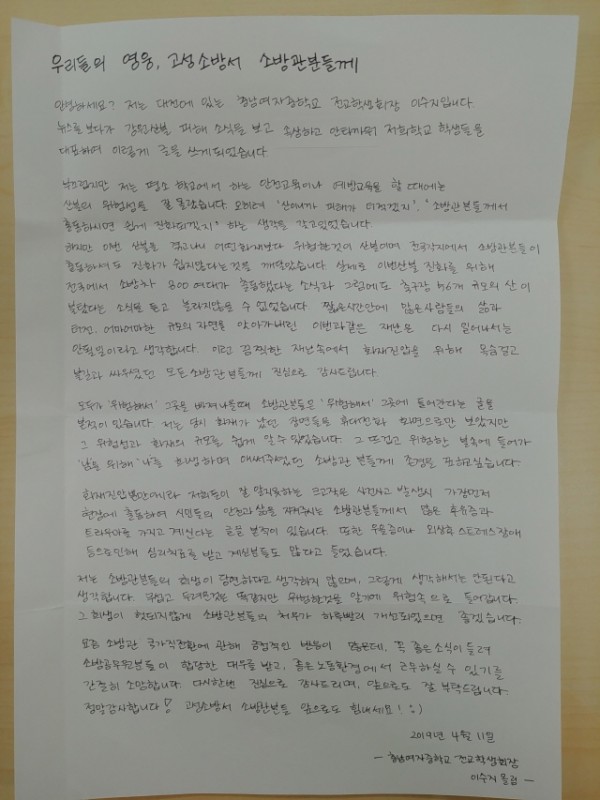 우리들의 영웅, 고성소방서 소방관분들께
안녕하세요? 저는 대전에 있는 충남여자중학교 전교학생회장 이수지입니다.
뉴스를 보다가 강원산불 피해 소식을 보고 속상하고 안타까워 저희학교 학생들을
대표하여 이렇게 글을 쓰게되었습니다.
부끄럽지만 저는 평소 학교에서 하는 안전교육이나 예방교육을 할 때에는
산불의 위험성을 잘 몰랐습니다. 오히려 '산이니까 피해가 적겠지', '소방관분들께서
출동하시면 쉽게 진화되겠지' 하는 생각을 갖고있었습니다.
하지만 이번 산불을 겪고나니 어떤화재보다 위험한것이 산불이며 전국각지에서 소방관분들이
출동하셔도 진화가 쉽지않다는것을 깨달았습니다. 실제로 이번산불 진화를 위해
전국에서 소방차 800여대가 출동했다는 소식과 그럼에도 축구장 개 규모의 산이
불탔다는 소식을 듣고 놀라지않을 수 없었습니다. 짧은시간안에 많은사람들의 삶과
터전, 어마어마한 규모의 자연을 앗아가버린 이번과같은 재난은 다시 일어나서는
안될일이라고 생각합니다. 이런 끔찍한 재난속에서 화재진압을 위해 목숨걸고
불길과 싸우셨던 모든소방관분들께 진심으로 감사드립니다.
모두가 '위험해서' 그곳을 빠져나올때 소방관분들은 '위험해서' 그곳에 들어간다는 글을
본적이 있습니다. 저는 당시 화재가 났던 장면들을 휴대전화 화면으로만 보았지만
그 위험성과 화재의 규모를 쉽게 알 수 있었습니다. 그 뜨겁고 위험한 불속에 들어가
'남'을 위해 '나'를 희생하며 애써주셨던 소방관 분들께 존경을 표하고싶습니다.
화재진압뿐만아니라 저희들이 잘 알지못하는 크고작은 사건사고 발생시 가장먼저
현장에 출동하여 시민들의 안전과 삶을 지켜주시는 소방관분들께서 많은 후유증과
트라우마를 가지고 계신다는 글을 본적이 있습니다. 또한 우울증이나 외상후 스트레스장애
등으로인해 심리치료를 받고 계신분들도 많다고 들었습니다.
저는 소방관분들의 희생이 당연하다고 생각하지 않으며, 그렇게 생각해서는 안된다고
생각합니다. 무섭고 두려운것은 똑같지만 위험한것을 알기에 위험속으로 들어갑니다.
그 희생이 헛되지않게 소방관분들의 처우가 하루빨리 개선되었으면 좋겠습니다.
요즘 소방관 국가직전환에 관해 긍정적인 반응이 많은데, 꼭 좋은소식이 들려
소방공무원분들이 합당한 대우를 받고, 좋은노동환경에서 근무하실 수 있기를
간절히 소망합니다. 다시한번 진심으로 감사드리며, 앞으로도 잘 부탁드립니다.
정말감사합니다♡ 고성소방서 소방관분들 앞으로도 힘내세요! :)
2019년 4월 11일
- 충남여자중학교 전교학생회장
이수지 올림 -